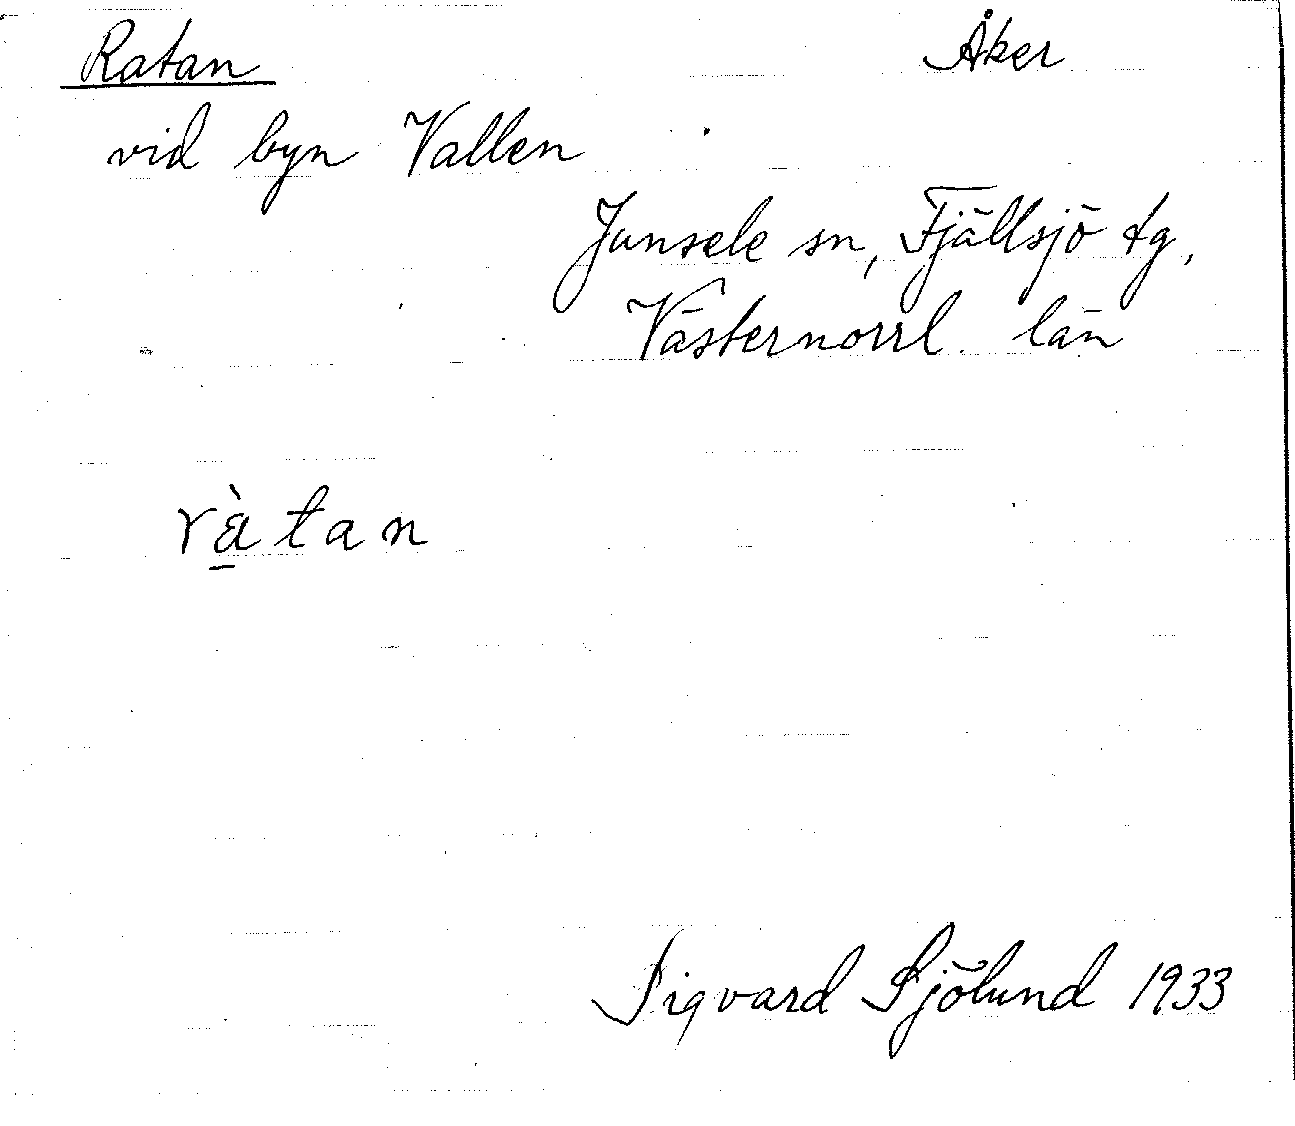 Ratan Åker
vid byn Vallen
Junsele sn, Fjällsjö tg,
Västernorrl. län
rà̱tan
Sigvard Sjölund 1933